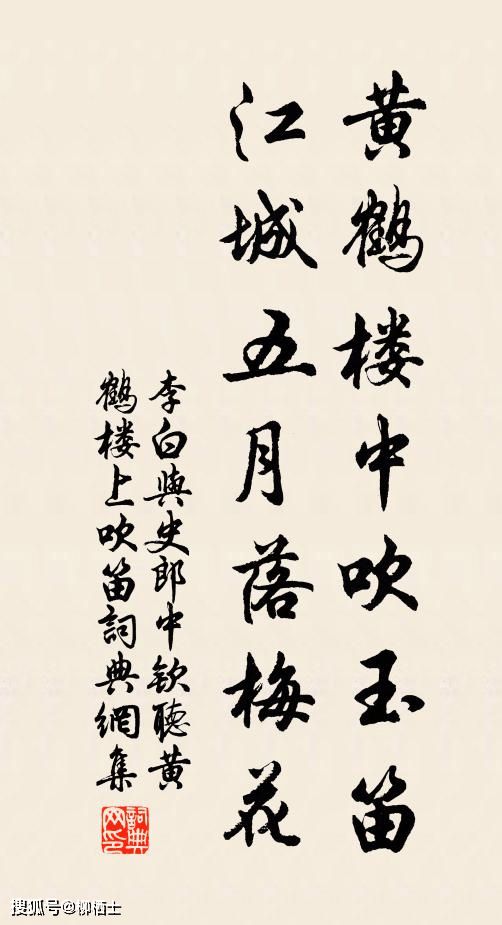 黄鹤楼中吹玉笛
江城五月落梅花
李白與史郎中钦聽黄
鹤楼上吹笛詞典網集
詞典
网印
搜狐号@柳栖士